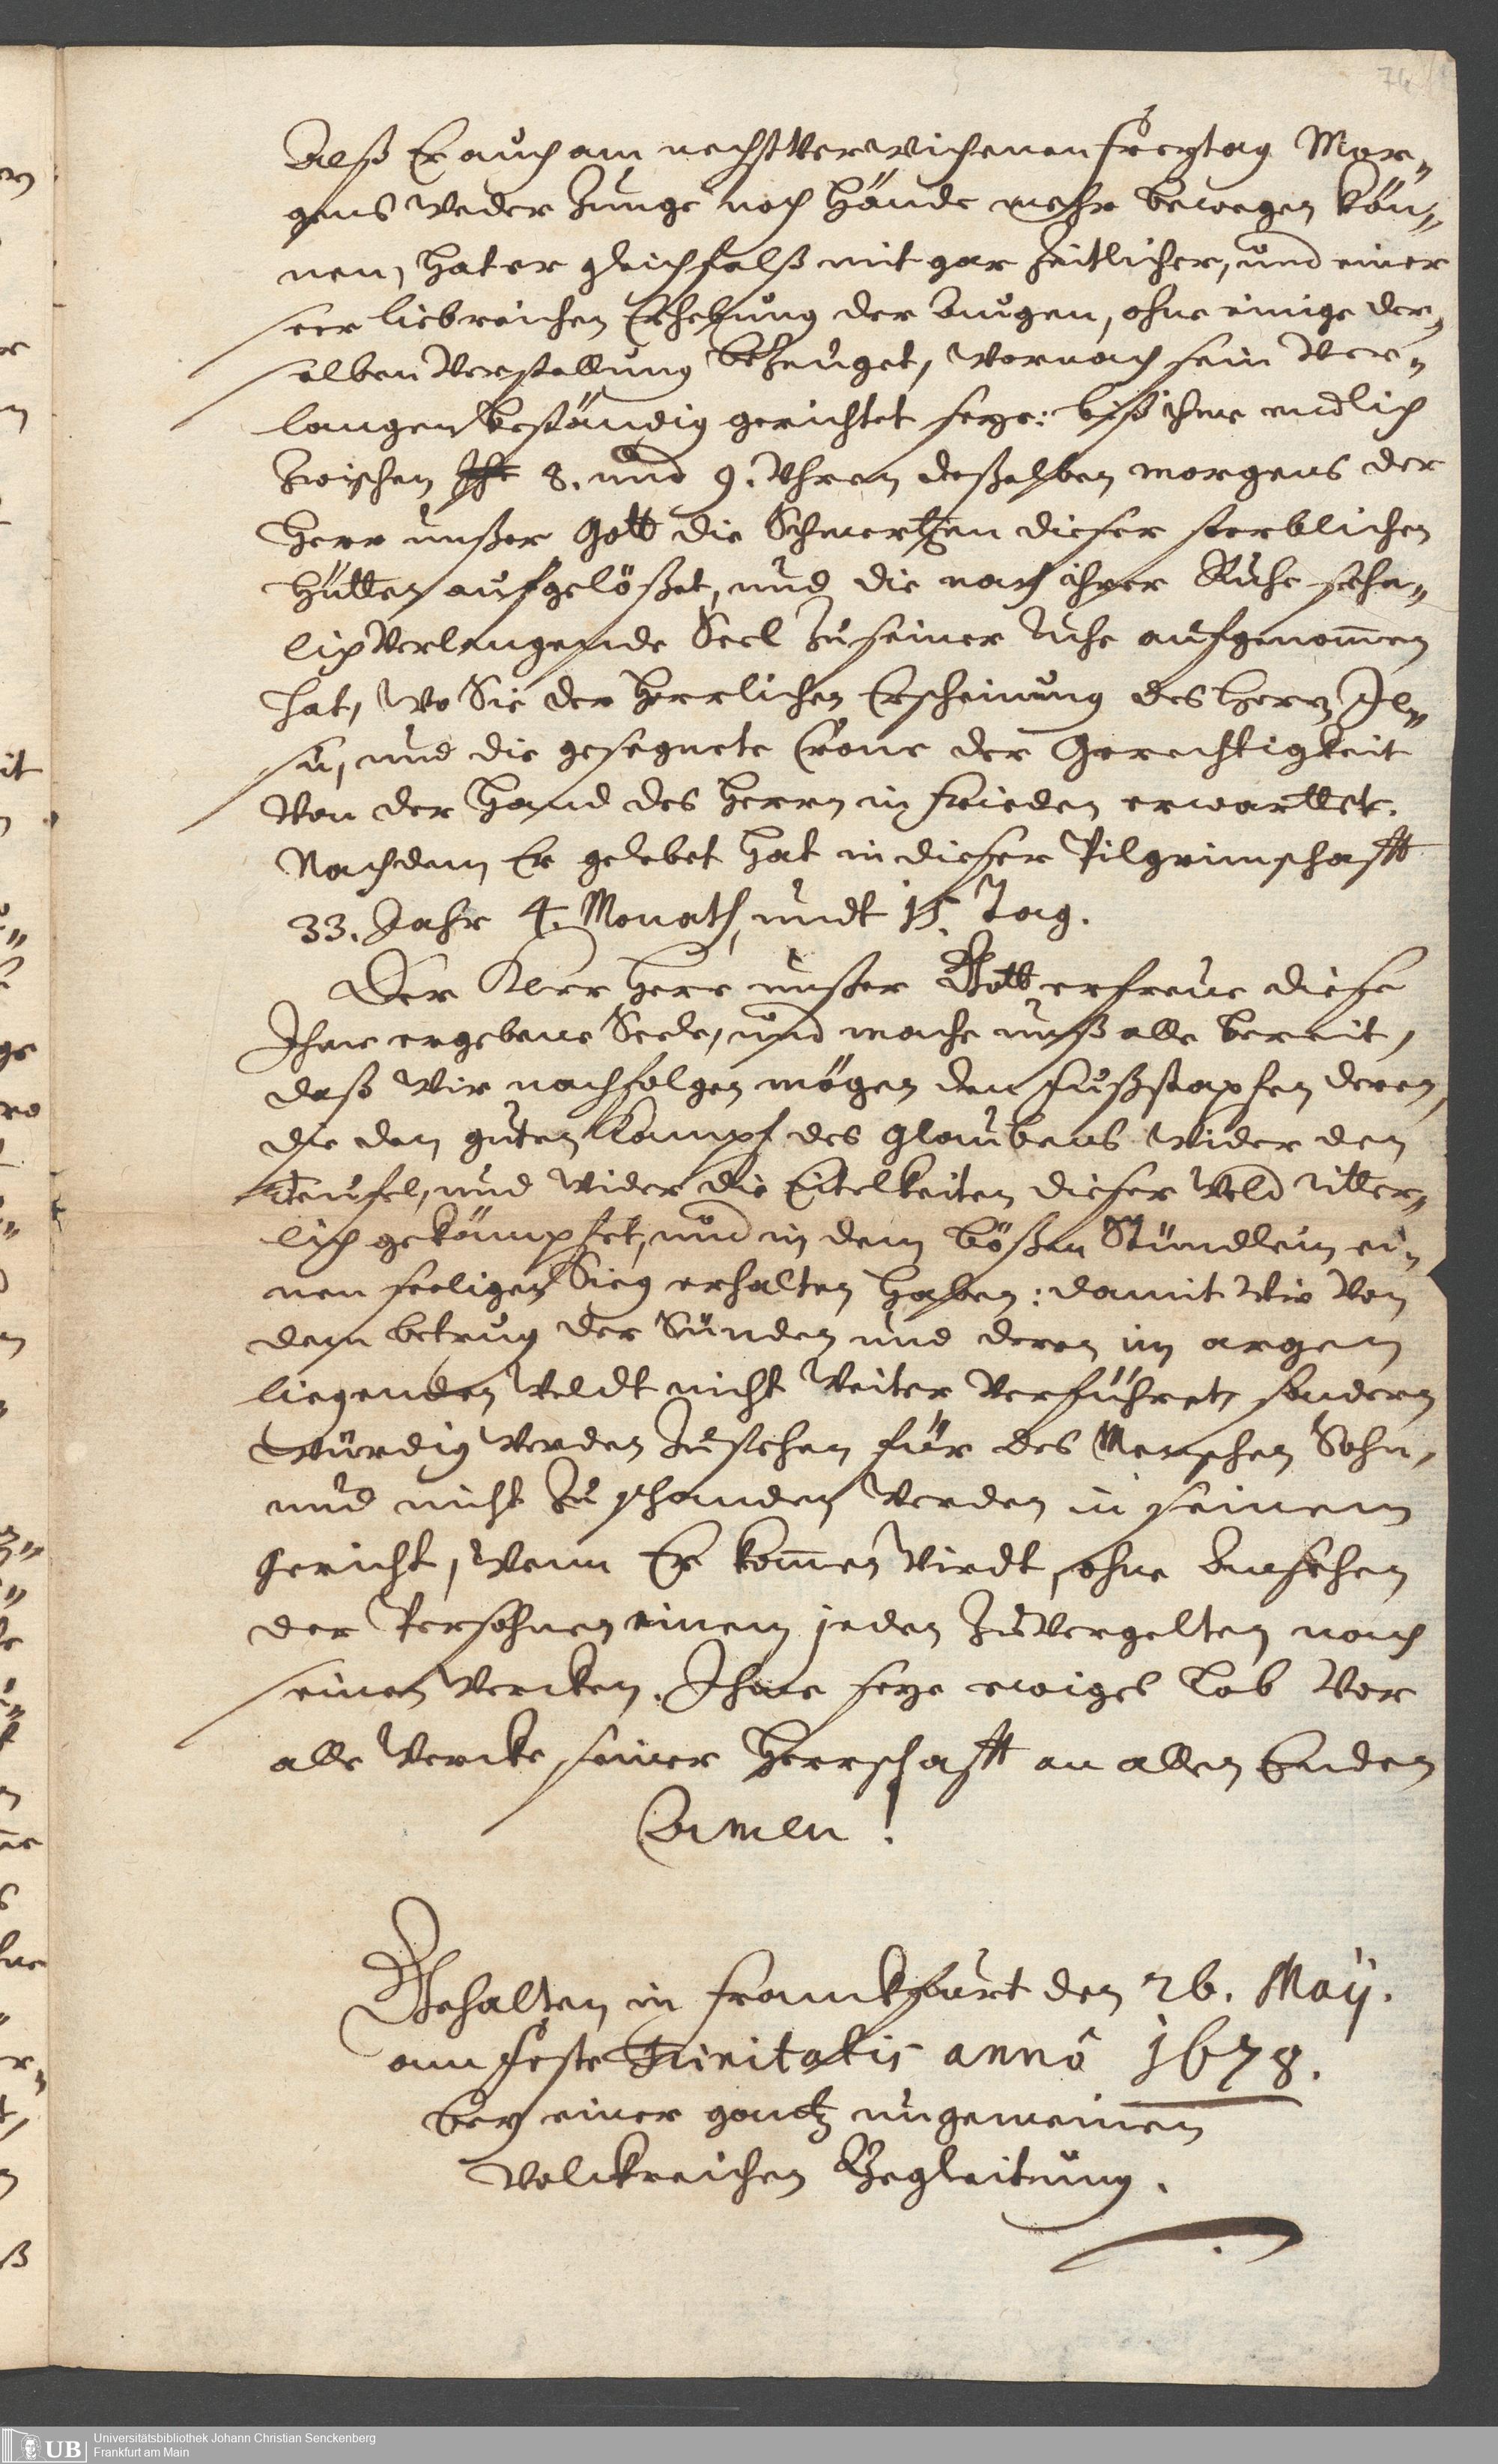 74
Alß Er auch am nechst Verwichenen Freytag Mor„
gens Weder Zunge noch Hände mehr bewegen kön„
nen, hat er gleichfalß mit gar Zeitlicher, und einer
seer liebreichen Erhebung der Augen, ohne einige der„
selben Verstellung bezeuget, Wornach sein Ver„
langen beständig gerichtet seye: biß ihme endlich
Zwischen 8. und 9. Uhren deßelben morgens der
Herr unßer Gott die Schmertzen dieser sterblichen
Hütten aufgelößet, und die nach ihrer Ruhe sehn„
lich Verlangende Seel Zu seiner Ruhe aufgenom̄en
hat, Wo Sie der Herrlichen Erscheinung des Herrn Je„
su, und die gesegnete Crone der Gerechtigkeit
Von der Hand des Herrn in Frieden erwarttet.
Nachdem Er gelebet hat in dieser Pilgrimschafft
33. Jahr 4. Monath, undt 15. Tag.
Der Herr unßer Gott erfreue diese
Ihme ergebene Seele, und mache unß alle bereit,
daß Wir nachfolgen mögen den Fußstapfen deren,
die den guten Kampf des Glaubens Wider den
Teufel, und Wider die Eitelkeiten dieser Weld ritter„
lich gekämpfet, und in dem bößen Stündlein ei„
nen seeligen Sieg erhalten haben: damit Wir Von
dem betrug der Sünden und deren im argen
liegenden Weldt nicht Weiter Verführet, sondern
Würdig Werden Zustehen für des Menschen Sohn,
und nicht Zu schanden Werden in seinem
Gericht, Wenn Er kom̄en Wirdt, ohne Ansehen
der Persohnen einem jeden Zu Vergelten nach
seinen Wercken. Ihme seye ewiges Lob Vor
alle Wercke seiner Herrschafft an allen Enden
Amen!
Gehalten in Franckfurt den 26. Maÿ.
am Feste Trinitatis anno 1678.
bey einer gantz ungemeinen
Volckreichen Begleitung.
UB
Universitätsbibliothek Johann Christian Senckenberg
Frankfurt am Main